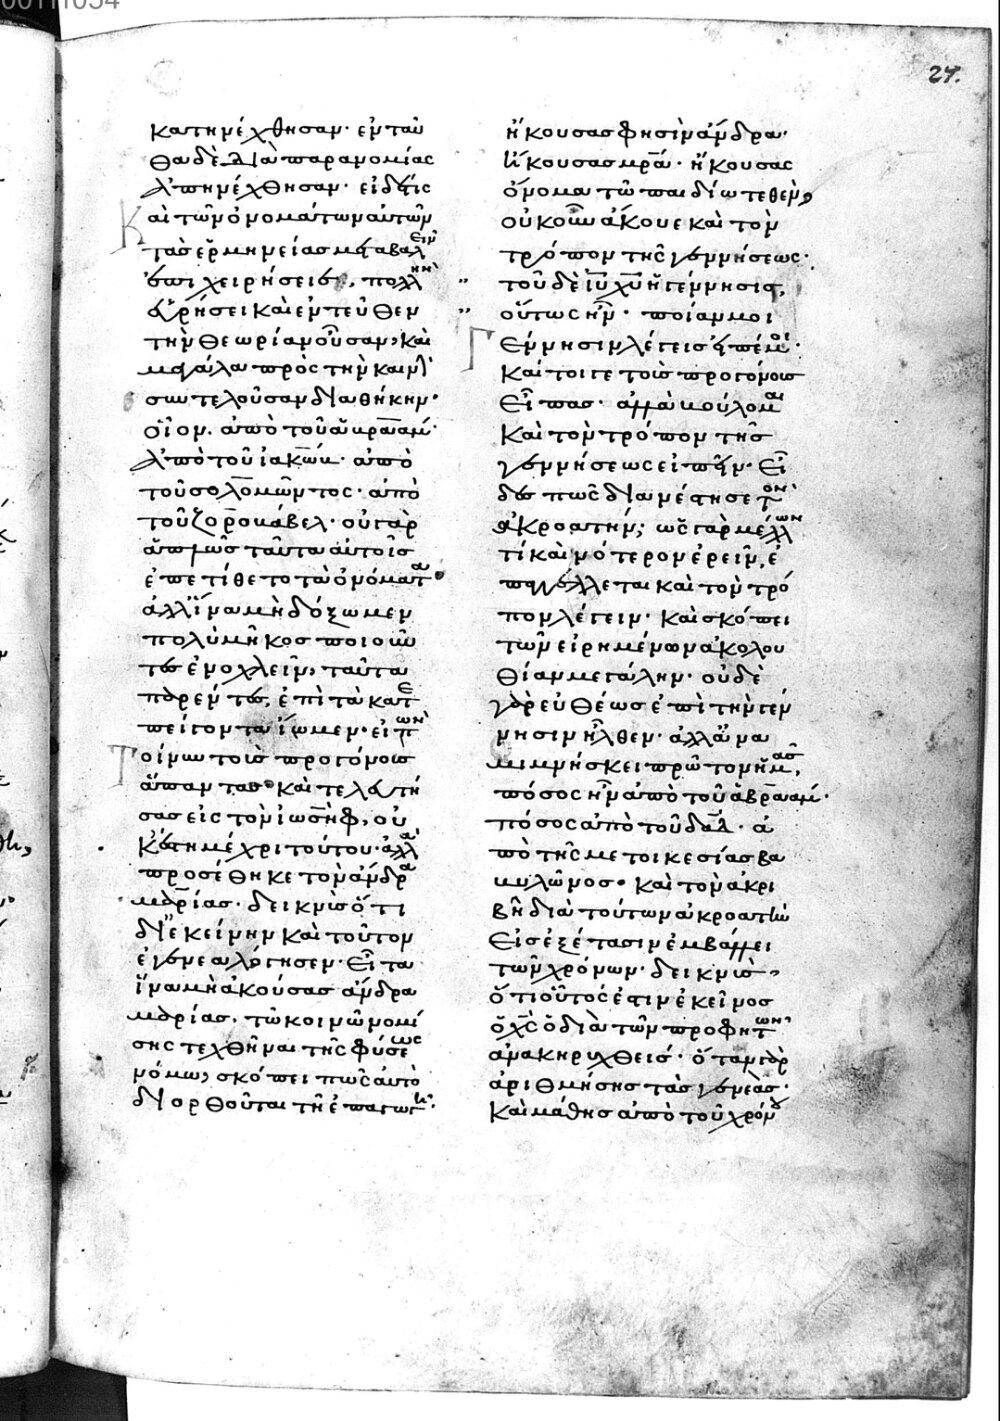 24.
κατηνέχθησαν· ἐνταῦ
θα δὲ διὰ παρανομίας
ἀπηνέχθησαν· εἰ δέ τις
καὶ τῶν ὀνομάτων αὐτῶν
τὰς ἑρμηνείας μεταβαλεῖν
ἐπιχειρήσειε, πολλὴν
εὑρήσει καὶ ἐντεῦθεν
τὴν θεωρίαν οὖσαν, καὶ
μεγάλα πρὸς τὴν καινὴ
συντελοῦσαν διαθήκην·
οἷον. ἀπὸ τοῦ ἀβραάμ·
ἀπὸ τοῦ ἰακώβ· ἀπὸ
τοῦ σολομῶντος· ἀπὸ
τοῦ ζοροβάβελ· οὐ γὰρ
ἁπλῶς ταῦτα αὐτοῖς
ἐπετίθετο τὰ ὀνόματα·
ἀλλ' ἵνα μὴ δόξωμεν
πολὺ μῆκος ποιοῦν
τες ἐνοχλεῖν, ταῦτα
παρέντες, ἐπὶ τὰ κατε
πείγοντα ἴωμεν· εἰπὼν
τοίνυν τοὺς προγόνους
ἅπαντας· καὶ τελευτή
σας εἰς τὸν ἰωσὴφ, οὐ
κ ἔστη μέχρι τούτου· ἀλλὰ
προσέθηκε τὸν ἄνδρα
μαρίας· δεικνὺς ὅτι
δι' ἐκείνην καὶ τοῦτον
ἐγενεαλόγησεν· εἶτα
ἵνα μὴ ἀκούσας ἄνδρα
μαρίας. τῷ κοινῷ νομί
σῃς τεχθῆναι τῆς φύσεως
νόμῳ, σκόπει πῶς αὐτὸ
διορθοῦται τῇ ἐπαγωγῇ·
ἤκουσας φησὶν ἄνδρα·
ἤκουσας μρα· ἤκουσας
ὄνομα τῷ παιδίῳ τεθὲν,
οὐκοῦν ἄκουε καὶ τὸν
τρόπον τῆς γεννήσεως·
τοῦ δὲ ιυ χυ ἡ γέννησις,
οὕτως ἦν· ποίαν μοι
γέννησιν λέγεις εἰπέ μοι·
καίτοιγε τοὺς προγόνους
εἶπας· ἀλλὰ βούλομαι
καὶ τὸν τρόπον τῆς
γεννήσεως εἰπεῖν· εἶ
δες πῶς διανέστησε τὸν
ἀκροατήν; ὡς γὰρ μέλλων
τί καινότερον ἐρεῖν, ἐ
παγγέλλεται καὶ τὸν τρό
πον λέγειν· καὶ σκόπει
τῶν εἰρημένων ἀκολου
θίαν μεγάλην· οὐδὲ
γὰρ εὐθέως ἐπὶ τὴν γέν
νησιν ἦλθεν· ἀλλ' ἀνα
μιμνήσκει πρῶτον ἡμᾶς,
πόσος ἦν ἀπὸ τοῦ ἀβραάμ·
πόσος ἀπὸ τοῦ δαδ· ἀ
πὸ τῆς μετοικεσίας βα
βυλῶνος· καὶ τὸν ἀκρι
βῆ διὰ τούτων ἀκροατὴν
εἰς ἐξέτασιν ἐμβάλλει
τῶν χρόνων· δεικνὺς,
ὅτι οὗτός ἐστιν ἐκεῖνος
ὁ χς ὁ διὰ τῶν προφητῶν
ἀνακηρυχθείς· ὅταν γὰρ
ἀριθμήσῃς τὰς γενεὰς·
καὶ μάθῃς ἀπὸ τοῦ χρόνου